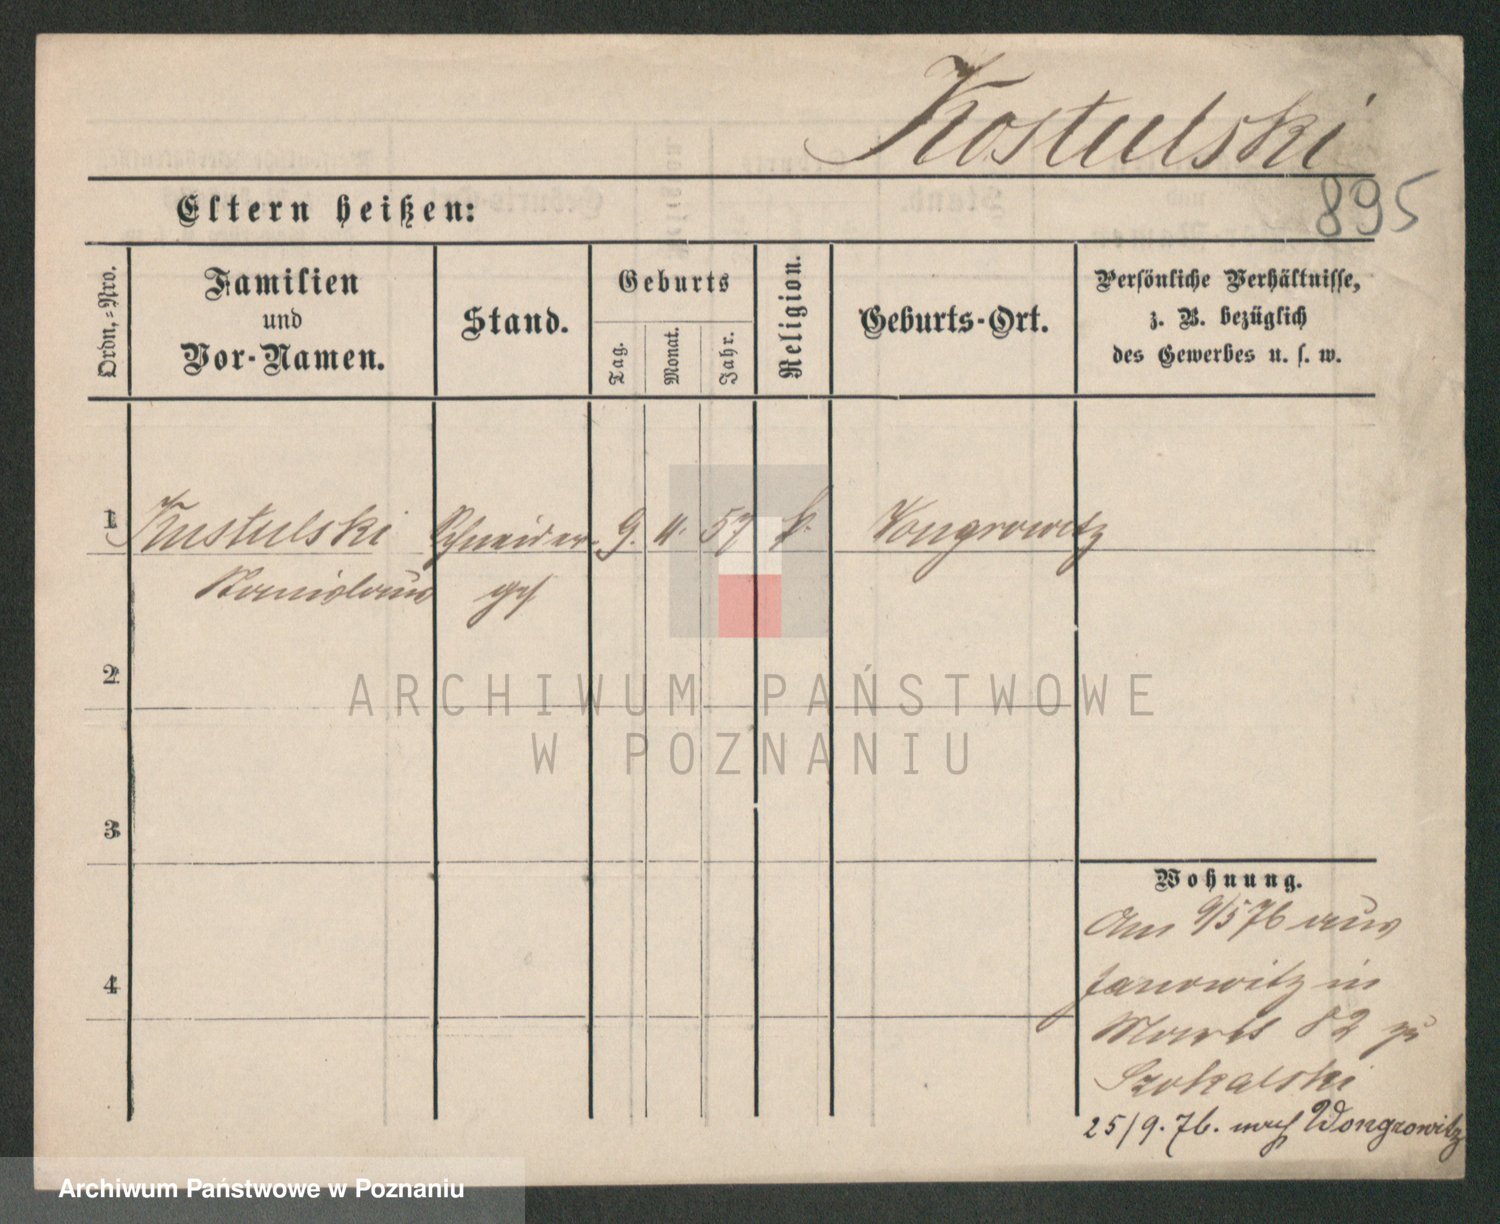 Kostulski
895
Eltern heißen:
Ordn.-Nro.
Familien
und
Vor-Namen.
Stand.
Geburts
Tag.
Monat.
Jahr.
Religion.
Geburts-Ort.
Persönliche Verhältnisse,
z. B. bezüglich
des Gewerbes u. s. w.
1 Kustulski Schneider- 9. 11. 57 k. Wongrowitz
Stanislaus ges
2
3
4
Wohnung.
Am 9/5 76 aus
Janowitz in
Markt 82 zu
Szokalski
25/9. 76. nach Wongrowitz
ARCHIWUM PAŃSTWOWE
W POZNANIU
Archiwum Państwowe w Poznaniu